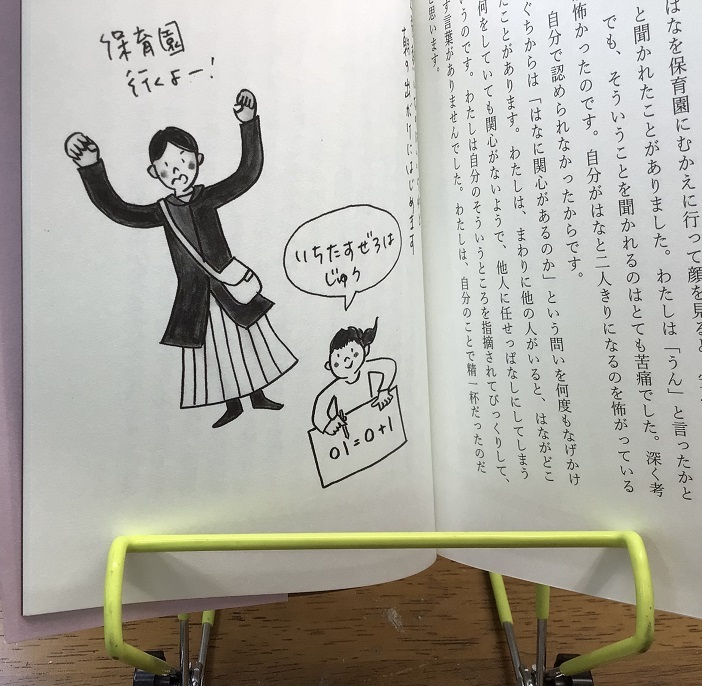 はなを保育園にむかえに行って顔を見ると、
と聞かれたことがありました。わたしは「うん」と言ったかと
でも、そういうことを聞かれるのはとても苦痛でした。深く考
怖かったのです。自分がはなと二人きりになるのを怖がっている
自分で認められなかったからです。
ぐちからは「はなに関心があるのか」という問いを何度もなげかけ
たことがあります。わたしは、まわりに他の人がいると、はながどこ
何をしていても関心がないようで、他人に任せっぱなしにしてしまう
いうのです。わたしは自分のそういうところを指摘されてびっくりして、
す言葉がありませんでした。わたしは、自分のことで精一杯だったのだ
と思います。
保育園
行くよー!
いちたすぜろは
じゅう
01=0+1